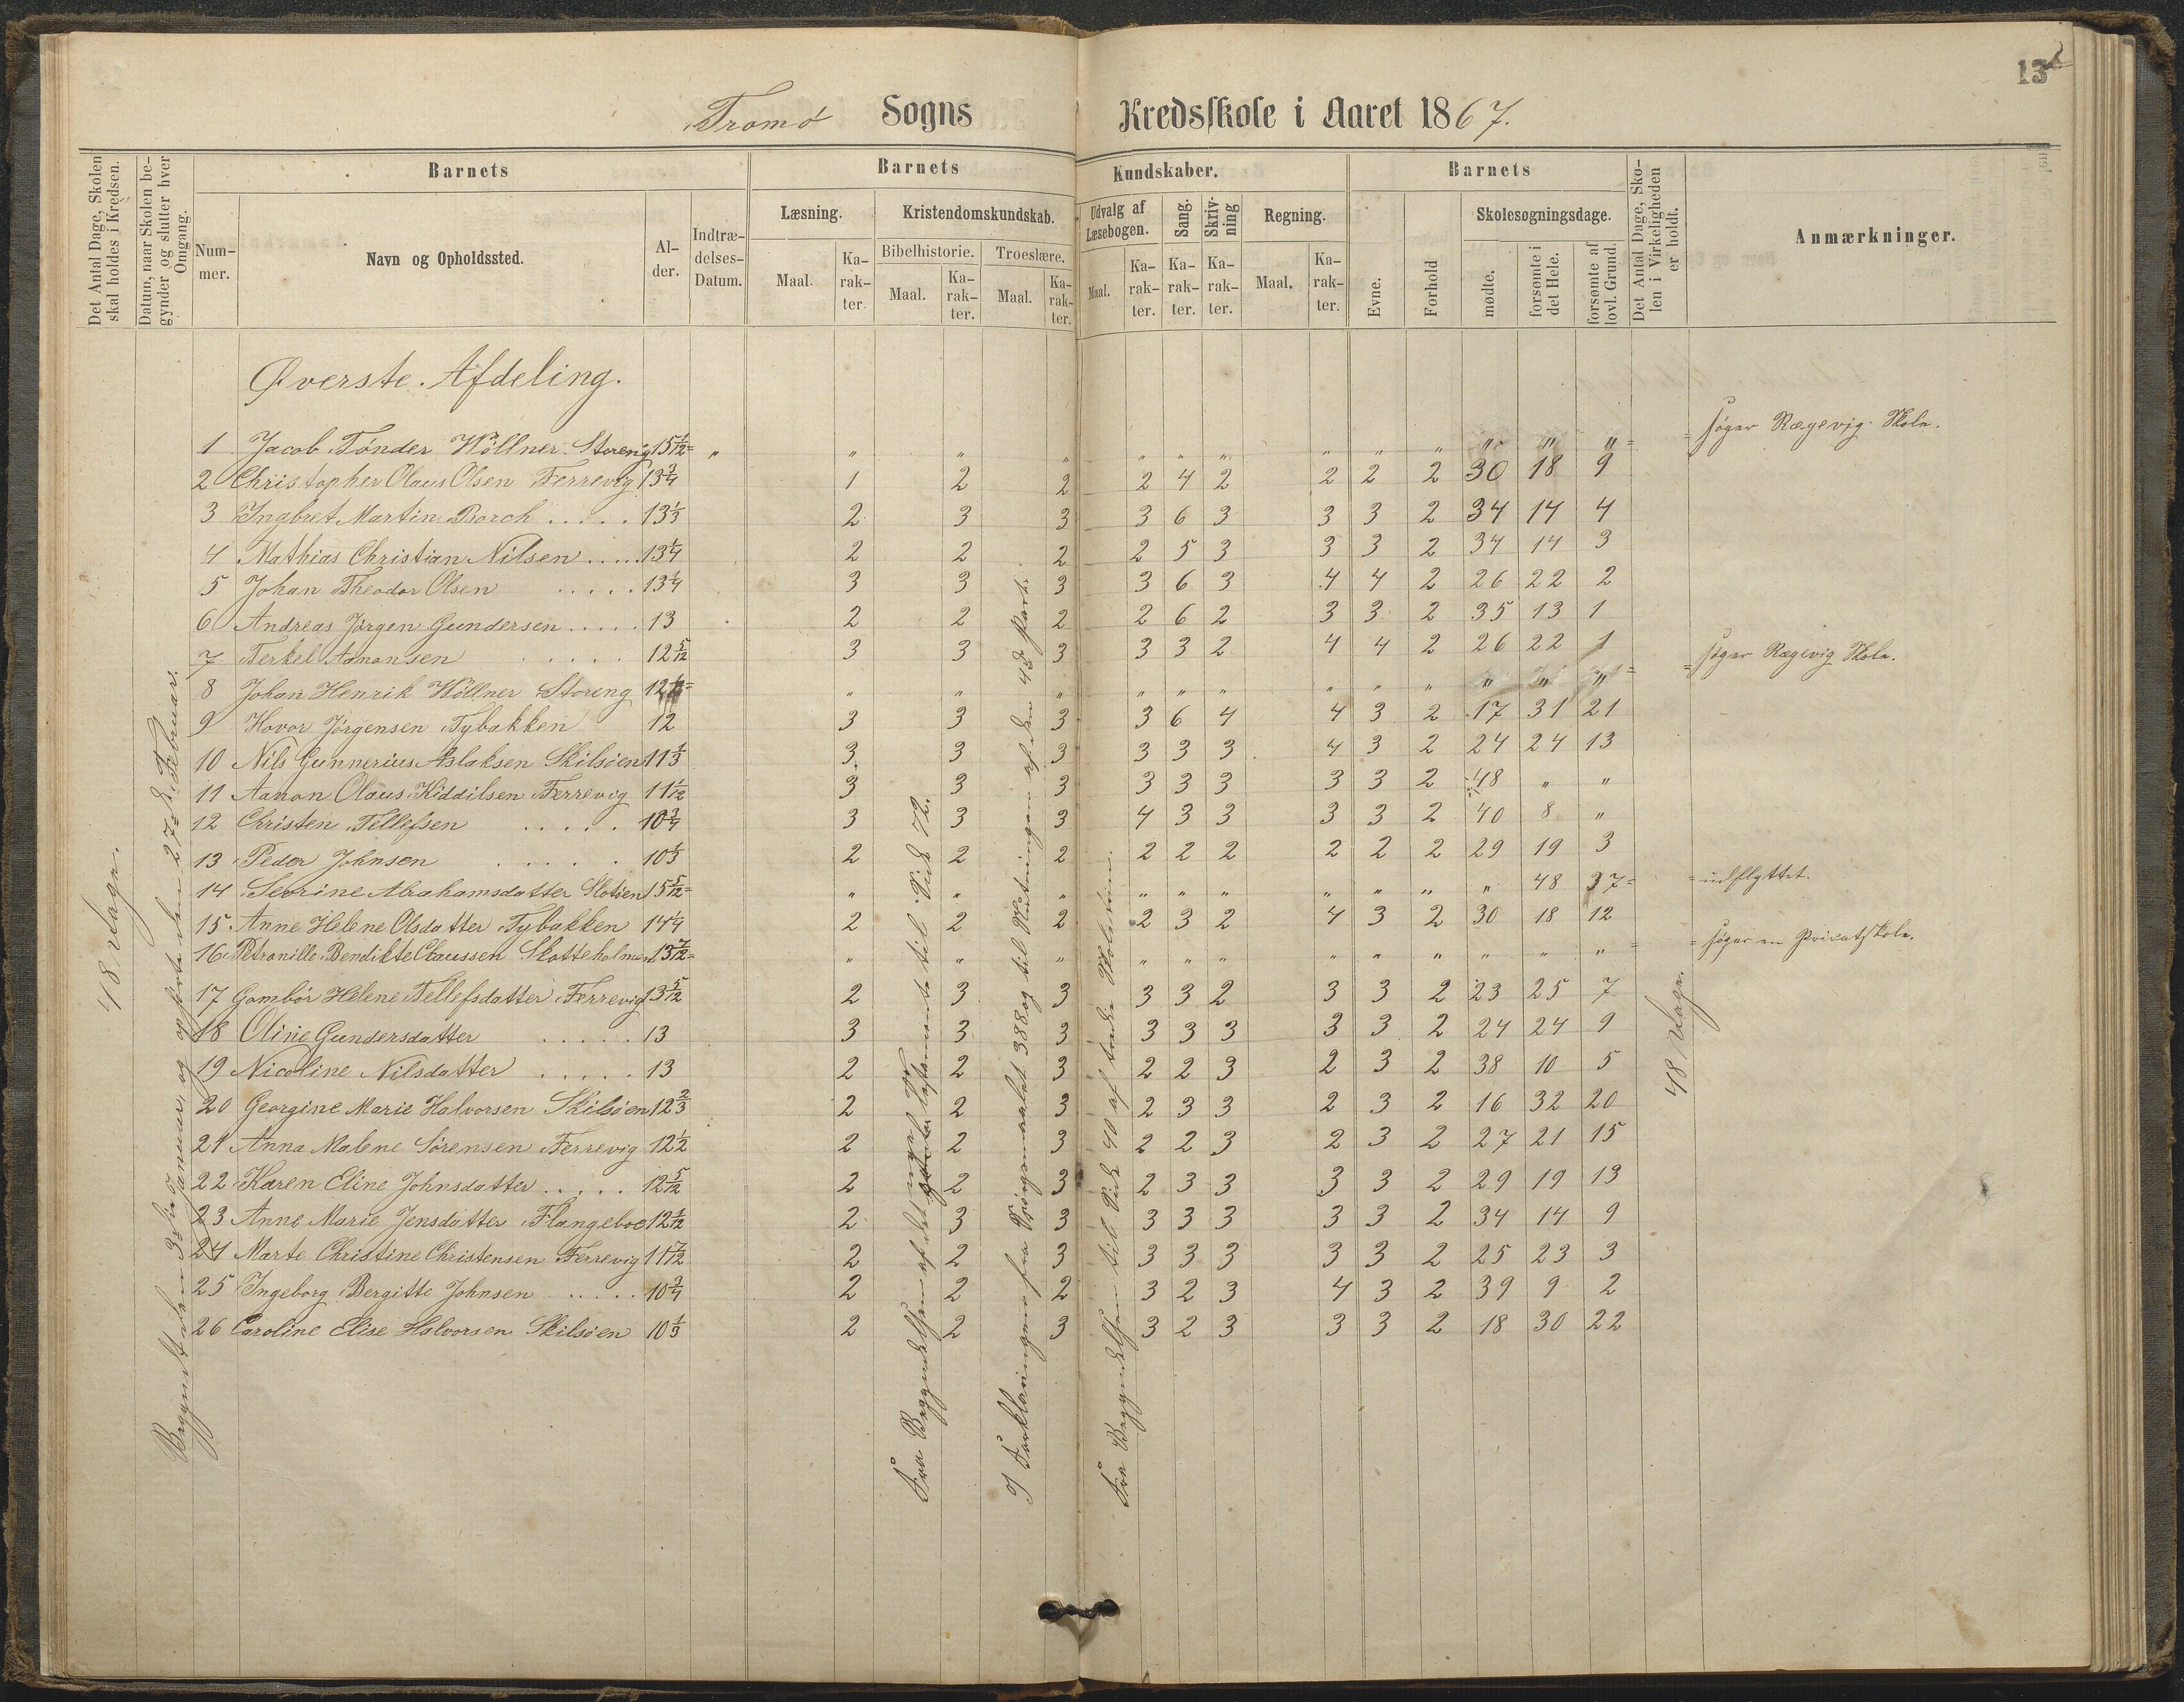 13
Tromø Sogns Kredsskole i Aaret 1867.
Det Antal Dage, Skolen skal holdes i Kredsen.
Datum, naar Skolen begynder og slutter hver Omgang.
Barnets
Nummer.
Navn og Opholdssted.
Alder.
Indtrædelses-Datum.
Barnets Kundskaber.
Læsning.
Maal. Karakter.
Kristendomskundskab.
Bibelhistorie. Troeslære.
Maal. Karakter. Maal. Karakter.
Udvalg af Læsebogen.
Maal. Karakter.
Sang. Karakter.
Skrivning Karakter.
Regning.
Maal. Karakter.
Barnets
Evne. Forhold
Skolesøgningsdage.
mødte. forsømte i det Hele. forsømte af lovl. Grund.
Det Antal Dage, Skolen i Virkeligheden er holdt.
Anmærkninger.
Øverste Afdeling.
1 Jacob Tønder Wöllner Storeng 15 1/12 = " " " " " " " " " " " " " = = søger Rægevig Skole.
2 Christopher Olaus Olsen Færrevig 13 3/4 1 2 2 2 4 2 2 2 2 30 18 9
3 Ingbret Martin Borch ..... 13 1/3 2 3 3 3 6 3 3 3 2 34 14 4
4 Mathias Christian Nilsen ..... 13 1/4 2 2 2 2 5 3 3 3 2 34 14 3
5 Johan Theodor Olsen ..... 13 1/4 3 3 3 3 6 3 4 4 2 26 22 2
6 Andreas Jørgen Gundersen ..... 13 2 2 2 2 6 2 3 3 2 35 13 1
7 Terkel Aanonsen ..... 12 5/12 3 3 3 3 3 2 4 4 2 26 22 1
8 Johan Henrik Wöllner Storeng 12 = " " " " " " " " " " " " = = søger Rægevig Skole.
9 Hovor Jørgensen Tybakken 12 3 3 3 3 6 4 4 3 2 17 31 21
10 Nils Gunnerius Aslaksen Skilsøen 11 1/3 3 3 3 3 3 3 4 3 2 24 24 13
11 Aanon Olaus Kiddilsen Færrevig 11 1/12 3 3 3 3 3 3 3 3 2 48 " "
12 Christen Tellefsen ..... 10 3/4 3 3 3 4 3 3 3 3 2 40 8 "
13 Peder Johnsen ..... 10 1/3 2 2 2 2 2 2 2 2 2 29 19 3
14 Serine Abrahamsdatter 15 5/12 = " " " " " " " " " " 48 37 = = udflyttet.
15 Anne Helene Olsdatter Tybakken 14 1/4 2 2 2 2 3 2 4 3 2 30 18 12
16 Petronille Bendikte Claussen Skotteholmen 13 7/12 = " " " " " " " " " " " " = = søger en Privatskole.
17 Gambør Helene Tellefsdatter Færrevig 13 5/12 2 3 3 3 3 2 3 3 2 23 25 7
18 Oline Gundersdatter ..... 13 3 3 3 3 3 3 3 3 2 24 24 9
19 Nicoline Nilsdatter ..... 13 2 2 3 2 2 3 2 3 2 38 10 5
20 Georgine Marie Halvorsen Skilsøen 12 2/3 2 2 3 2 3 3 2 3 2 16 32 20
21 Anna Malene Sørensen Færrevig 12 1/2 2 2 3 2 2 3 2 3 2 27 21 15
22 Karen Eline Johnsdatter ..... 12 5/12 2 2 3 2 3 3 3 3 2 29 19 13
23 Anne Marie Jensdatter Flangeboe 12 1/12 2 3 3 3 3 3 3 3 2 34 14 9
24 Marte Christine Christensen Færrevig 11 7/12 2 2 3 3 3 3 3 3 2 25 23 3
25 Ingeborg Bergitte Johnsen ..... 10 3/4 2 2 2 3 2 3 4 3 2 39 9 2
26 Caroline Elise Halvorsen Skilsøen 10 1/3 2 2 3 3 2 3 3 3 2 18 30 22
48 Dage.
Begyndt den 3die Januar, og ophørte den 27de Februar.
Fra Begyndelsen af det nye Testamente til Side 72.
I Forklaringen fra Spørgsmaalet 388 og til Slutningen af den 4de Part.
Fra Begyndelsen til Side 40 af tredie Skoletrin.
48 Dage.